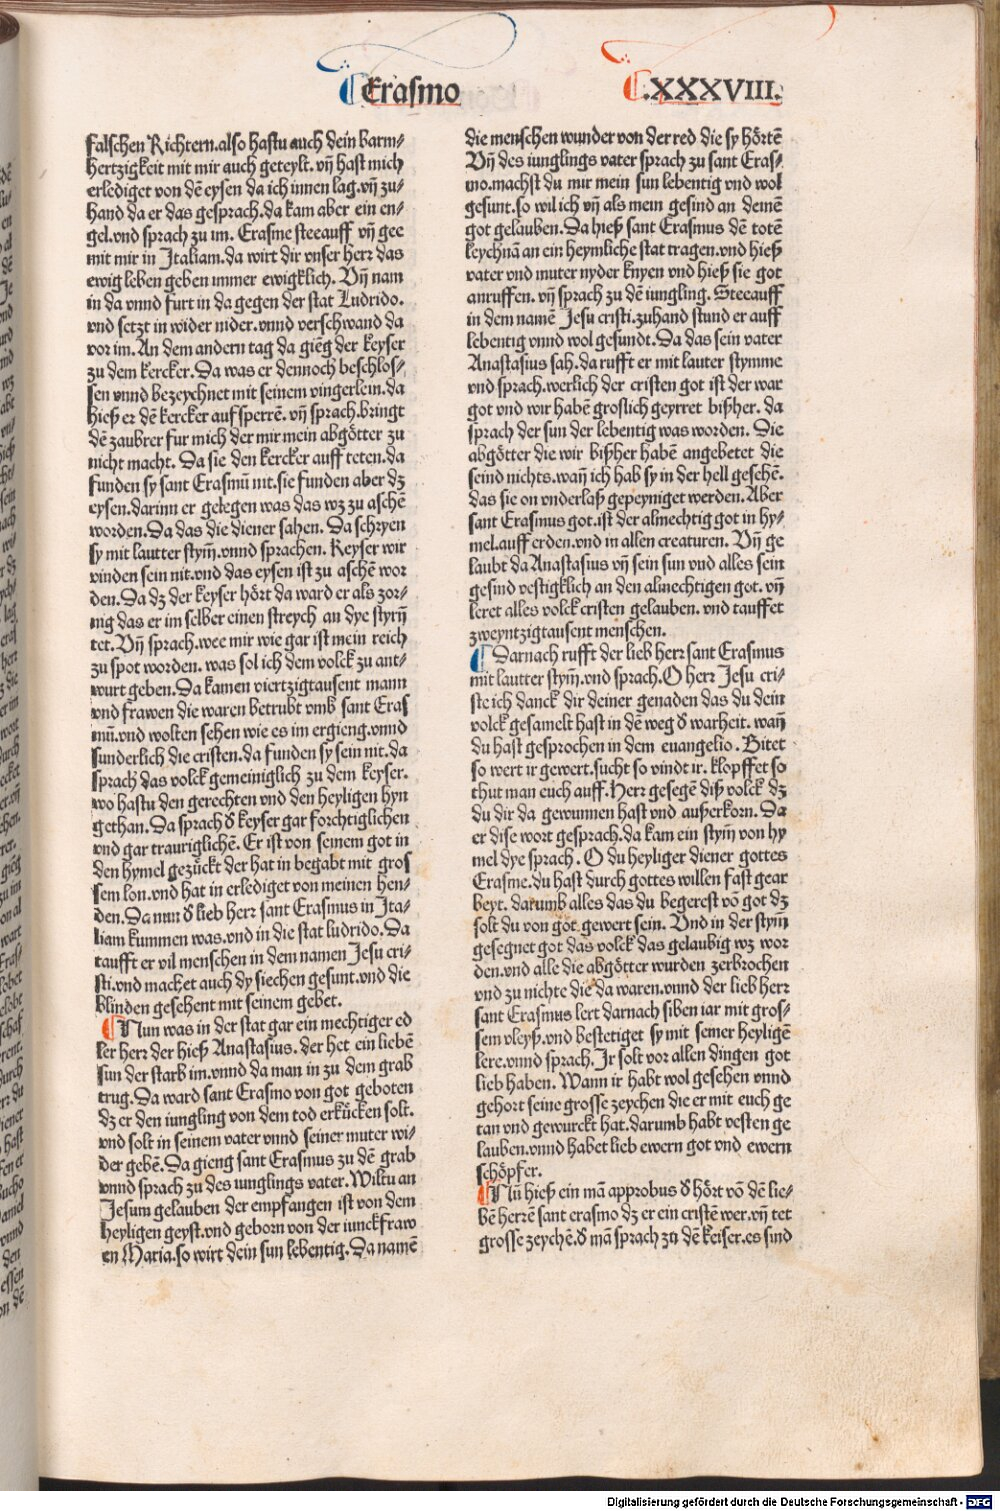 Erasmo
.XXXVIII.
falschen Richtern.also hastu auch dein barm⸗
hertzigkeit mit mir auch geteylt.vñ hast mich
erlediget von dē eysen da ich innen lag.vñ zu⸗
hand da er das gesprach.da kam aber ein en⸗
gel.vnd sprach zu im. Erasme steeauff vñ gee
mit mir in Italiam.da wirt dir vnser herr das
ewig leben geben immer ewigklich. Vñ nam
in da vnnd furt in da gegen der stat Ludrido.
vnd setzt in wider nider.vnnd verschwand da
vor im. An dem andern tag da giēg der keyser
zu dem kercker. Da was er dennoch beschlos⸗
sen vnnd bezeychnet mit seinem vingerlein.da
hieß er dē kercker auf sperrē. vñ sprach.bringt
dē zaubrer fur mich der mir mein abgötter zu
nicht macht. Da sie den kercker auff teten.da
funden sy sant Erasmū nit.sie funden aber dz
eysen.darinn er gelegen was das wz zu aschē
worden.Da das die diener sahen. Da schryen
sy mit lautter stym̄.vnnd sprachen. Keyser wir
vinden sein nit.vnd das eysen ist zu aschē wor
den.Da dz der keyser hört da ward er als zor⸗
nig das er im selber einen streych an dye styrn̄
tet. Vñ sprach.wee mir wie gar ist mein reich
zu spot worden. was sol ich dem volck zu ant⸗
wurt geben.Da kamen viertzigtausent mann
vnd frawen die waren betrubt vmb sant Eras
mū.vnd wolten sehen wie es im ergieng.vnnd
sunderlich die cristen.da funden sy sein nit.da
sprach das volck gemeiniglich zu dem keyser.
wo hastu den gerechten vnd den heyligen hyn
gethan. Da sprach d̕ keyser gar forchtiglichen
vnd gar trauriglichē. Er ist von seinem got in
den hymel gezuͤckt der hat in begabt mit gros
sem lon.vnd hat in erlediget von meinen hen⸗
den. Da nun d̕ lieb herr sant Erasmus in Ita⸗
liam kummen was.vnd in die stat ludrido. Da
taufft er vil menschen in dem namen Jesu cri⸗
sti.vnd machet auch dy siechen gesunt.vnd die
blinden gesehent mit seinem gebet.
Nun was in der stat gar ein mechtiger ed
ler herr der hieß Anastasius. der het ein liebē
sun der starb im.vnnd da man in zu dem grab
trug. Da ward sant Erasmo von got geboten
dz er den iungling von dem tod erkücken solt.
vnd solt in seinem vater vnnd seiner muter wi⸗
der gebē. Da gieng sant Erasmus zu dē grab
vnnd sprach zu des iunglings vater. Wiltu an
Jesum gelauben der empfangen ist von dem
heyligen geyst.vnd geborn von der iunckfraw
en Maria.so wirt dein sun lebentig. Da namē
die menschen wunder von der red die sy hörtē
Vñ des iunglings vater sprach zu sant Eras⸗
mo.machst du mir mein sun lebentig vnd wol
gesunt.so wil ich vñ als mein gesind an deinē
got gelauben. Da hieß sant Erasmus dē totē
leychnā an ein heymliche stat tragen.vnd hieß
vater vnd muter nyder knyen vnd hieß sie got
anruffen. vñ sprach zu dē iungling. Steeauff
in dem namē Jesu cristi.zuhand stund er auff
lebentig vnnd wol gesundt. Da das sein vater
Anastasius sah.da rufft er mit lauter stymme
vnd sprach.werlich der cristen got ist der war
got vnd wir habē groslich geyrret bißher. da
sprach der sun der lebentig was worden. Die
abgötter die wir bißher habē angebetet die
seind nichts.wañ ich hab sy in der hell gesehē.
das sie on vnderlaß gepeyniget werden. Aber
sant Erasmus got.ist der almechtig got in hy⸗
mel.auff erden.vnd in allen creaturen. Vñ ge
laubt da Anastasius vñ sein sun vnd alles sein
gesind vestigklich an den almechtigen got. vñ
leret alles volck cristen gelauben. vnd tauffet
zweyntzigtausent menschen.
Darnach rufft der lieb herr sant Erasmus
mit lautter stym̄.vnd sprach.O herr Jesu cri⸗
ste ich danck dir deiner genaden das du dein
volck gesamelt hast in dē weg d̕ warheit. wañ
du hast gesprochen in dem euangelio. Bitet
so wert ir gewert.sucht so vindt ir. klopffet so
thut man euch auff. Herr gesegē diß volck dz
du dir da gewunnen hast vnd außerkorn. Da
er dise wort gesprach.da kam ein stym̄ von hy
mel dye sprach. O du heyliger diener gottes
Erasme.du hast durch gottes willen fast gear
beyt. darumb alles das du begerest vō got dz
solt du von got gewert sein. Vnd in der stym̄
gesegnet got das volck das gelaubig wz wor
den.vnd alle die abgötter wurden zerbrochen
vnd zu nichte die da waren.vnnd der lieb herr
sant Erasmus lert darnach siben iar mit gros⸗
sem vleyß.vnd bestetiget sy mit seiner heyligē
lere.vnnd sprach. Ir solt vor allen dingen got
lieb haben. Wann ir habt wol gesehen vnnd
gehort seine grosse zeychen die er mit euch ge
tan vnd gewurckt hat.darumb habt vesten ge
lauben.vnnd habet lieb ewern got vnd ewern
schöpfer.
Nū hieß ein mā approbus d̕ hört vō dē lie⸗
bē herrē sant erasmo dz er ein cristē wer.vñ tet
grosse zeychē.d̕ mā sprach zu dē keiser.es sind
Digitalisierung gefördert durch die Deutsche Forschungsgemeinschaft - DFG